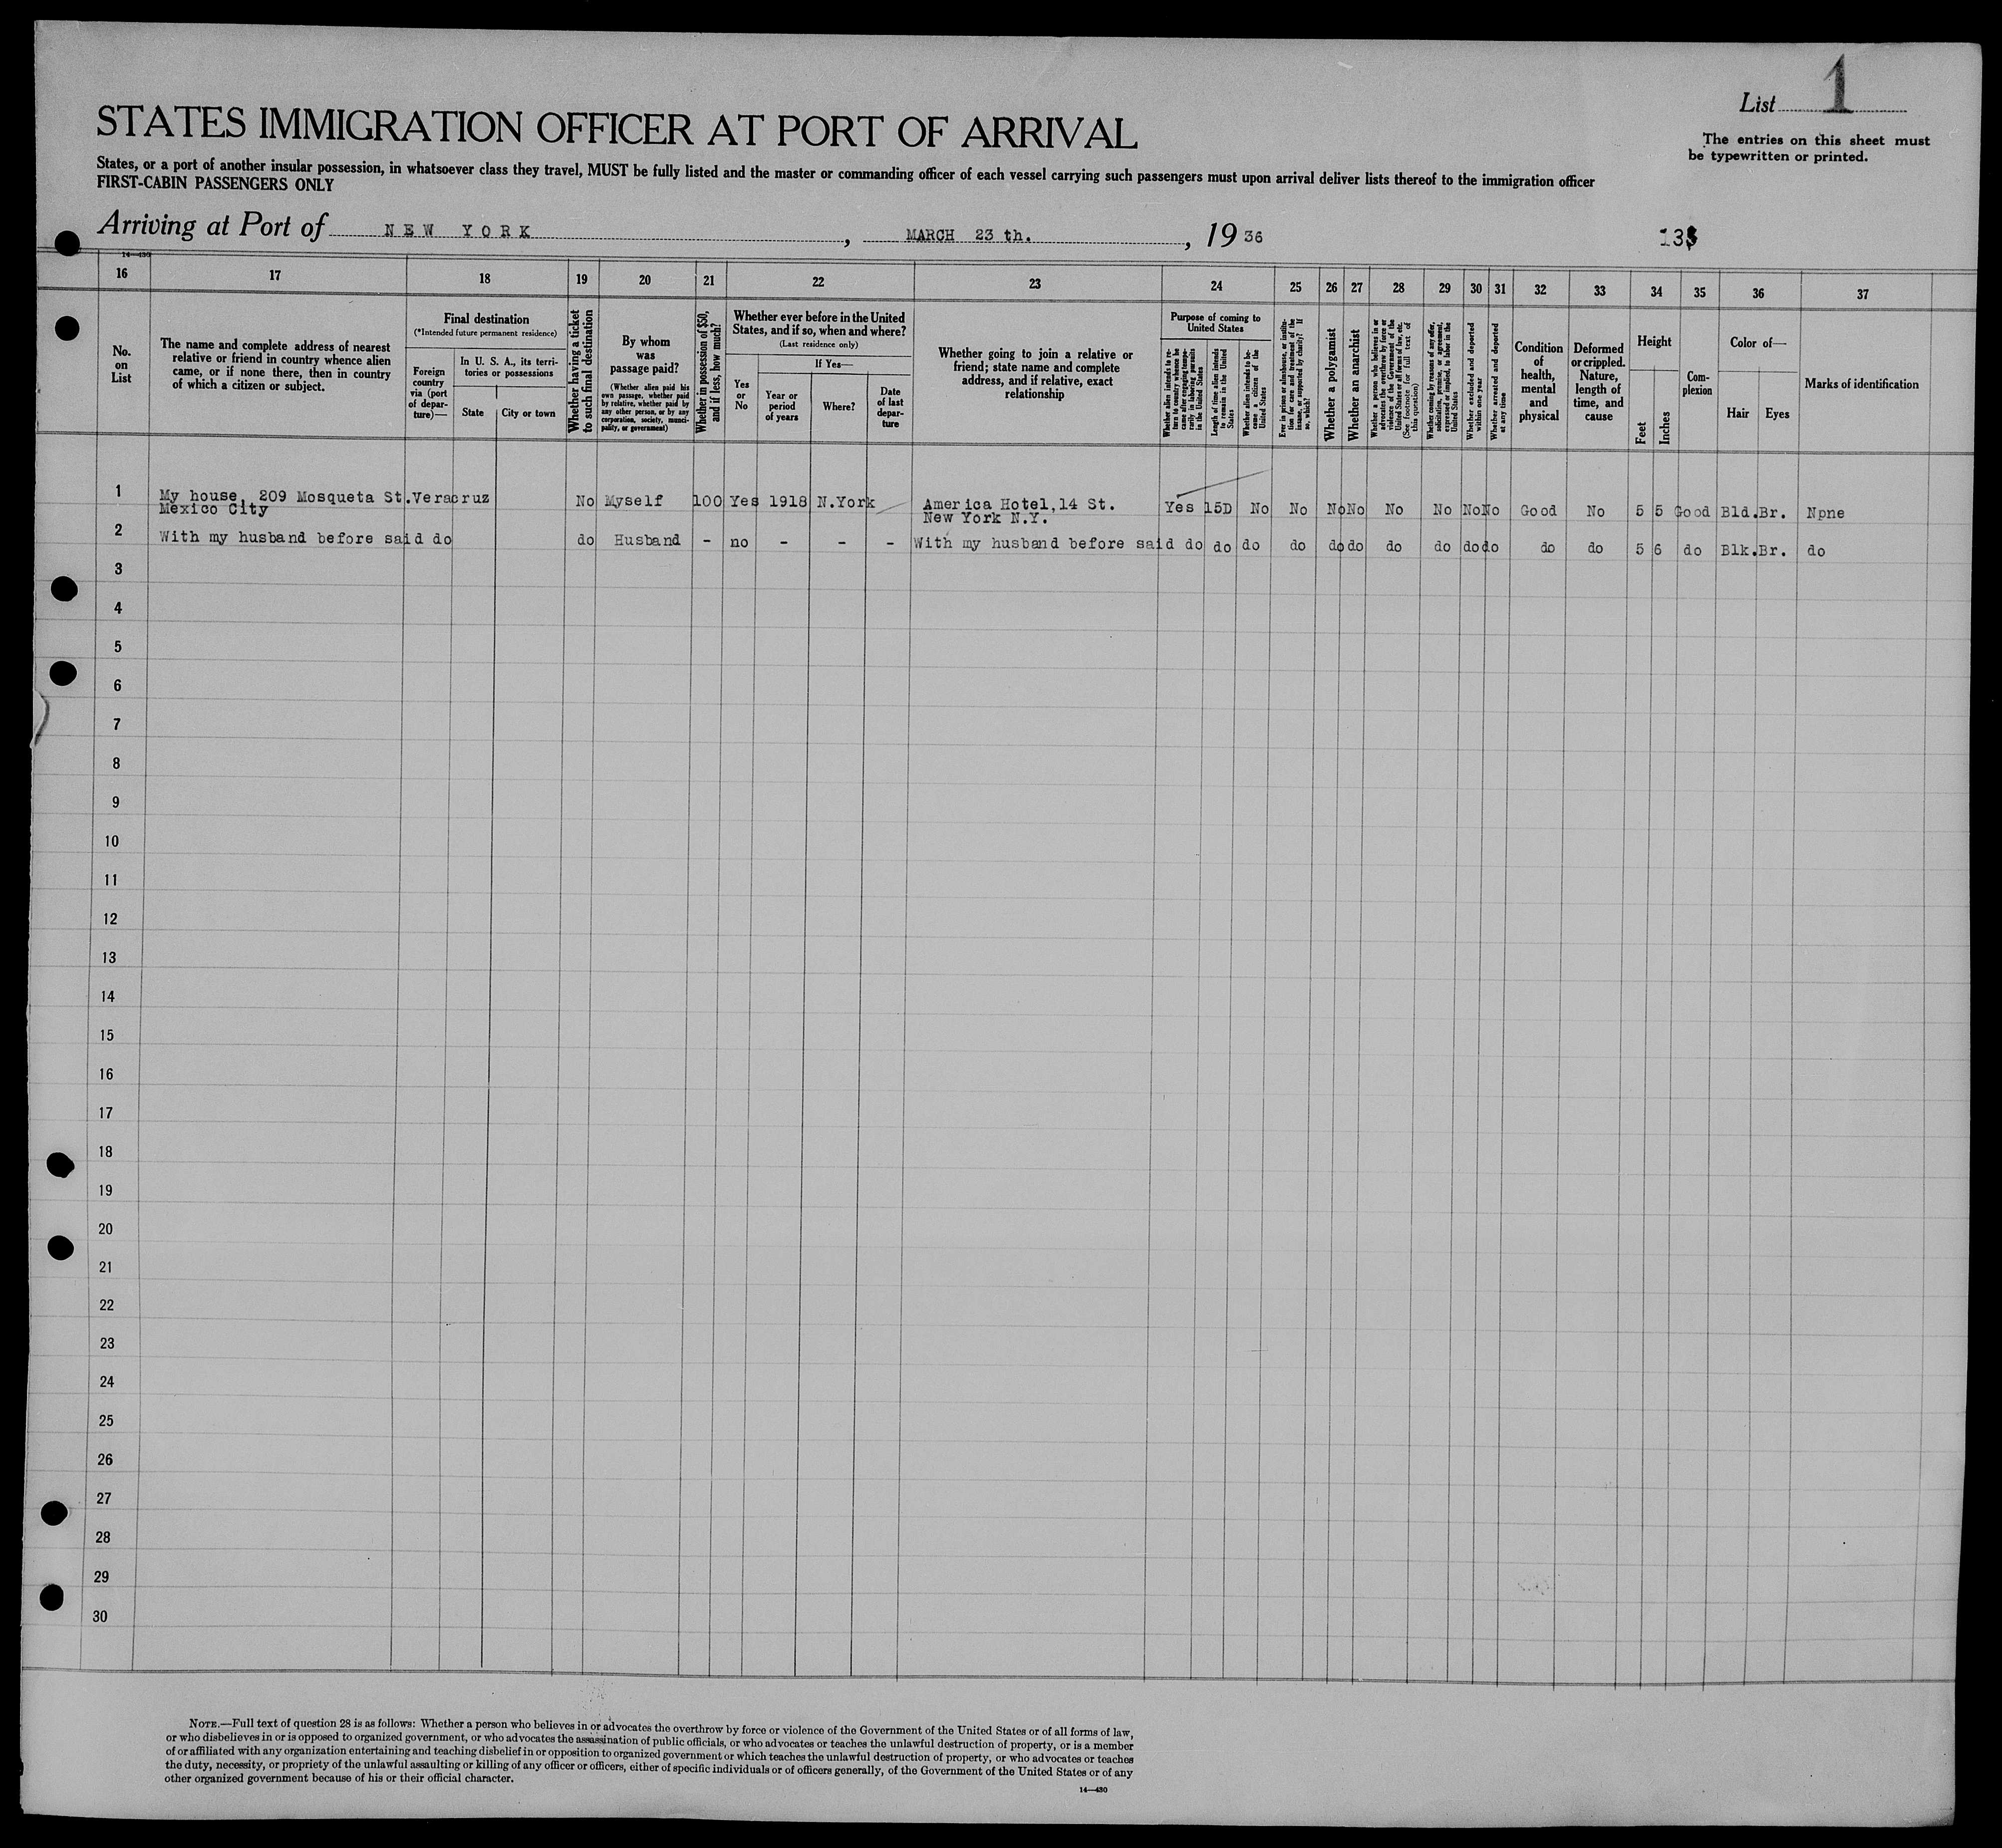 List 1
STATES IMMIGRATION OFFICER AT PORT OF ARRIVAL
The entries on this sheet must
be typewritten or printed.
States, or a port of another insular possession, in whatsoever class they travel, MUST be fully listed and the master or commanding officer of each vessel carrying such passengers must upon arrival deliver lists thereof to the immigration officer
FIRST-CABIN PASSENGERS ONLY
Arriving at Port of NEW YORK, MARCH 23 th., 19 36
14—430
16 17 18 19 20 21 22 23 24 25 26 27 28 29 30 31 32 33 34 35 36 37
No.
on
List
The name and complete address of nearest
relative or friend in country whence alien
came, or if none there, then in country
of which a citizen or subject.
Final destination
(*Intended future permanent residence)
Foreign
country
via (port
of depar-
ture)—
In U. S. A., its terri-
tories or possessions
State
City or town
Whether having a ticket
to such final destination
By whom
was
passage paid?
(Whether alien paid his
own passage, whether paid
by relative, whether paid by
any other person, or by any
corporation, society, munici-
pality, or government)
Whether in possession of $50,
and if less, how much?
Whether ever before in the United
States, and if so, when and where?
(Last residence only)
Yes
or
No
If Yes—
Year or
period
of years
Where?
Date
of last
depar-
ture
Whether going to join a relative or
friend; state name and complete
address, and if relative, exact
relationship
Purpose of coming to
United States
Whether alien intends to re-
turn to country whence he
came after engaging tempo-
rarily in laboring pursuits
in the United States
Length of time alien intends
to remain in the United
States
Whether alien intends to be-
come a citizen of the
United States
Ever in prison or almshouse, or institu-
tion for care and treatment of the
insane, or supported by charity? If
so, which?
Whether a polygamist
Whether an anarchist
Whether a person who believes in or
advocates the overthrow by force or
violence of the Government of the
United States or all forms of law, etc.
(See footnote for full text of
this question)
Whether coming by reason of any offer,
solicitation, promise, or agreement,
expressed or implied, to labor in the
United States
Whether excluded and deported
within one year
Whether arrested and deported
at any time
Condition
of
health,
mental
and
physical
Deformed
or crippled.
Nature,
length of
time, and
cause
Height
Feet
Inches
Com-
plexion
Color of—
Hair
Eyes
Marks of identification
1 My house, 209 Mosqueta St. Veracruz No Myself 100 Yes 1918 N.York America Hotel,14 St. Yes 15D No No No No No No No No Good No 5 5 Good Bld. Br. Npne
Mexico City New York N.Y.
2 With my husband before said do do Husband - no - - - With my husband before said do do do do do do do do do do do do 5 6 do Blk. Br. do
3
4
5
6
7
8
9
10
11
12
13
14
15
16
17
18
19
20
21
22
23
24
25
26
27
28
29
30
NOTE.—Full text of question 28 is as follows: Whether a person who believes in or advocates the overthrow by force or violence of the Government of the United States or of all forms of law,
or who disbelieves in or is opposed to organized government, or who advocates the assassination of public officials, or who advocates or teaches the unlawful destruction of property, or is a member
of or affiliated with any organization entertaining and teaching disbelief in or opposition to organized government or which teaches the unlawful destruction of property, or who advocates or teaches
the duty, necessity, or propriety of the unlawful assaulting or killing of any officer or officers, either of specific individuals or of officers generally, of the Government of the United States or of any
other organized government because of his or their official character.
14—430